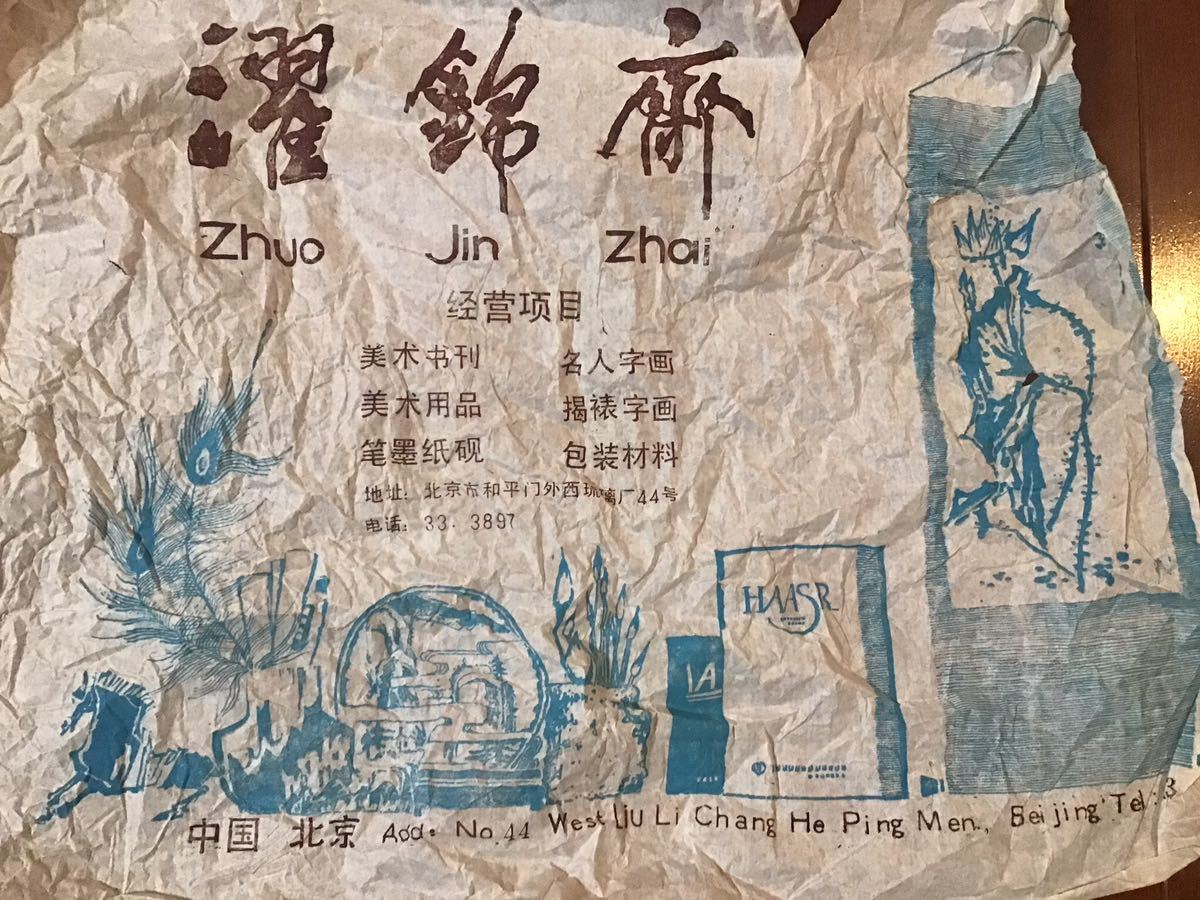 濯錦齋
Zhuo Jin Zhai
经营项目
美术书刊 名人字画
美术用品 揭裱字画
笔墨纸砚 包装材料
地址: 北京市和平门外西琉璃厂44号
电话: 33.3897
HAASR
IA
中国 北京 Add: No.44 West Liu Li Chang He Ping Men., Beijing Tel:3